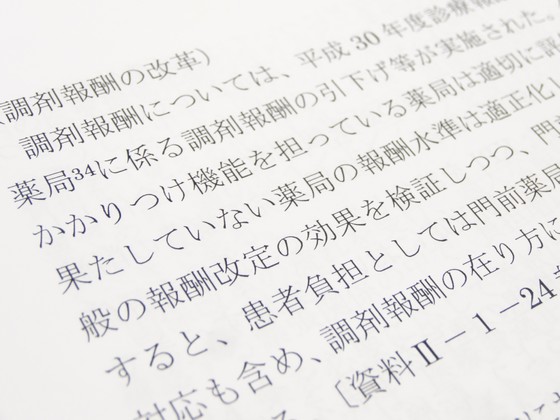 調剤報酬の改革）
調剤報酬については、平成30年度診療報
薬局34に係る調剤報酬の引下げ等が実施された。
かかりつけ機能を担っている薬局は適切に評
果たしていない薬局の報酬水準は適正化
般の報酬改定の効果を検証しつつ、門
すると、患者負担としては門前薬局
対応も含め、調剤報酬の在り方に
〔資料Ⅱ－1－24